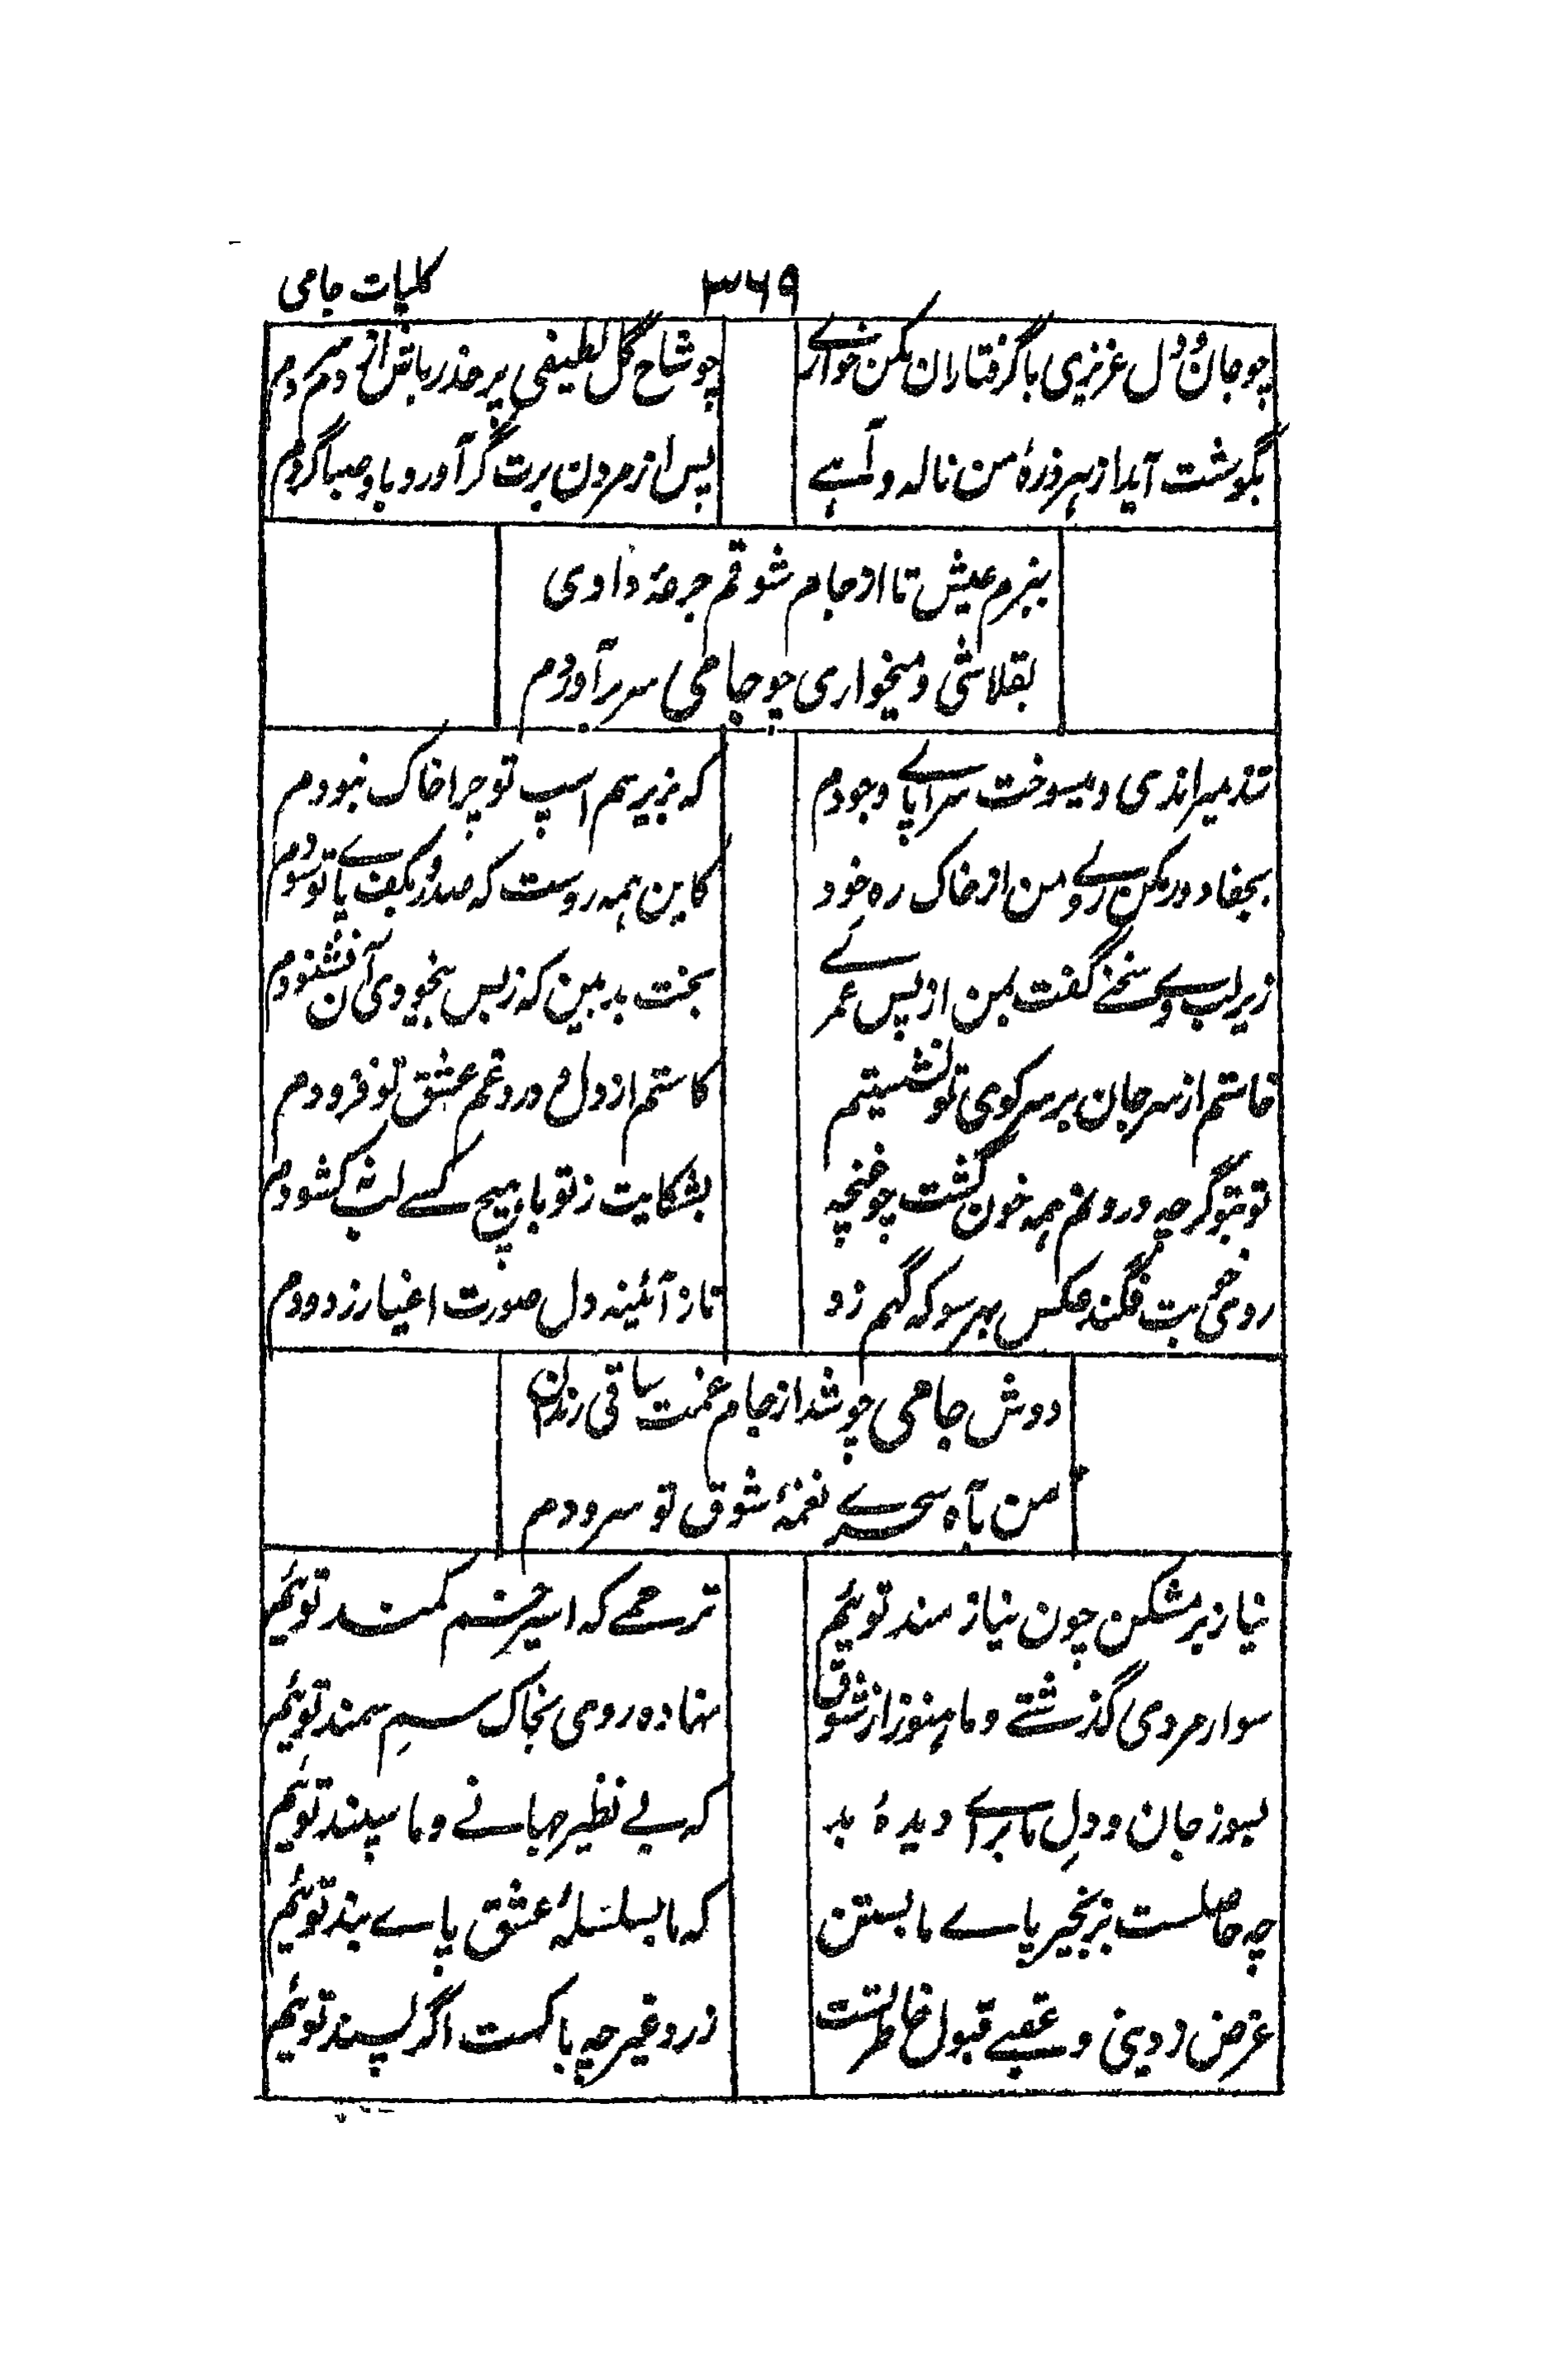 کلیات جامی
۳۶۹
چو جان و دل عزیزی با گرفتاران مکن خواری
چو شاخ گل لطیفی پر حذر باش از دم سردم
بگوشت آید از هر ذرهٔ من ناله و آہے
پس از مردن برت گر آورد باد صبا گردم
ببزم عیش تا از جام شوقم جرعهٔ دادی
بقلاشی و میخواری چو جامی سر برآوردم
تند میراندی و میسوخت سراپاے وجودم
که بزیر سم اسپ تو چرا خاک نبودم
بجفا دور مکن روے من از خاک ره خود
کاین همه روست که صد ره بکف پاے تو سودم
زیر لب وے سخنے گفت بمن از پس عمرے
بخت بد بین که ز بس بیخودی آن نشنودم
خاستم از سر جان بر سر کوی تو نشستیم
کاستم از دل و درد غم عشق تو فزودم
تو بتو گرچه درونم همه خون گشت چو غنچه
بشکایت ز تو با هیچ کسے لب نکشودم
روی خوبت فگند عکس بهر سو که گهم زد
تا ز آئینه دل صورت اغیار زدودم
دوش جامی چو شد از جام غمت ساقی رندان
من بآه سحرے نغمهٔ شوق تو سرودم
نیاز بر مشکن چون نیاز مند توئیم
ترحمے که اسیر خم کمند توئیم
سوار مردی گذشتے و ما هنوز از شوق
نهاده روی بخاک سمِ سمند توئیم
بسوز جان و دلِ ما براے دیدهٔ بد
که بے نظیر جهانے و ما سپند توئیم
چه حاصلست بزنجیر پاے ما بستن
که ما بسلسلهٔ عشق پاے بند توئیم
غرض ز دینی و عقبے قبول خاطر تست
ز رد غیر چه باکست اگر پسند توئیم